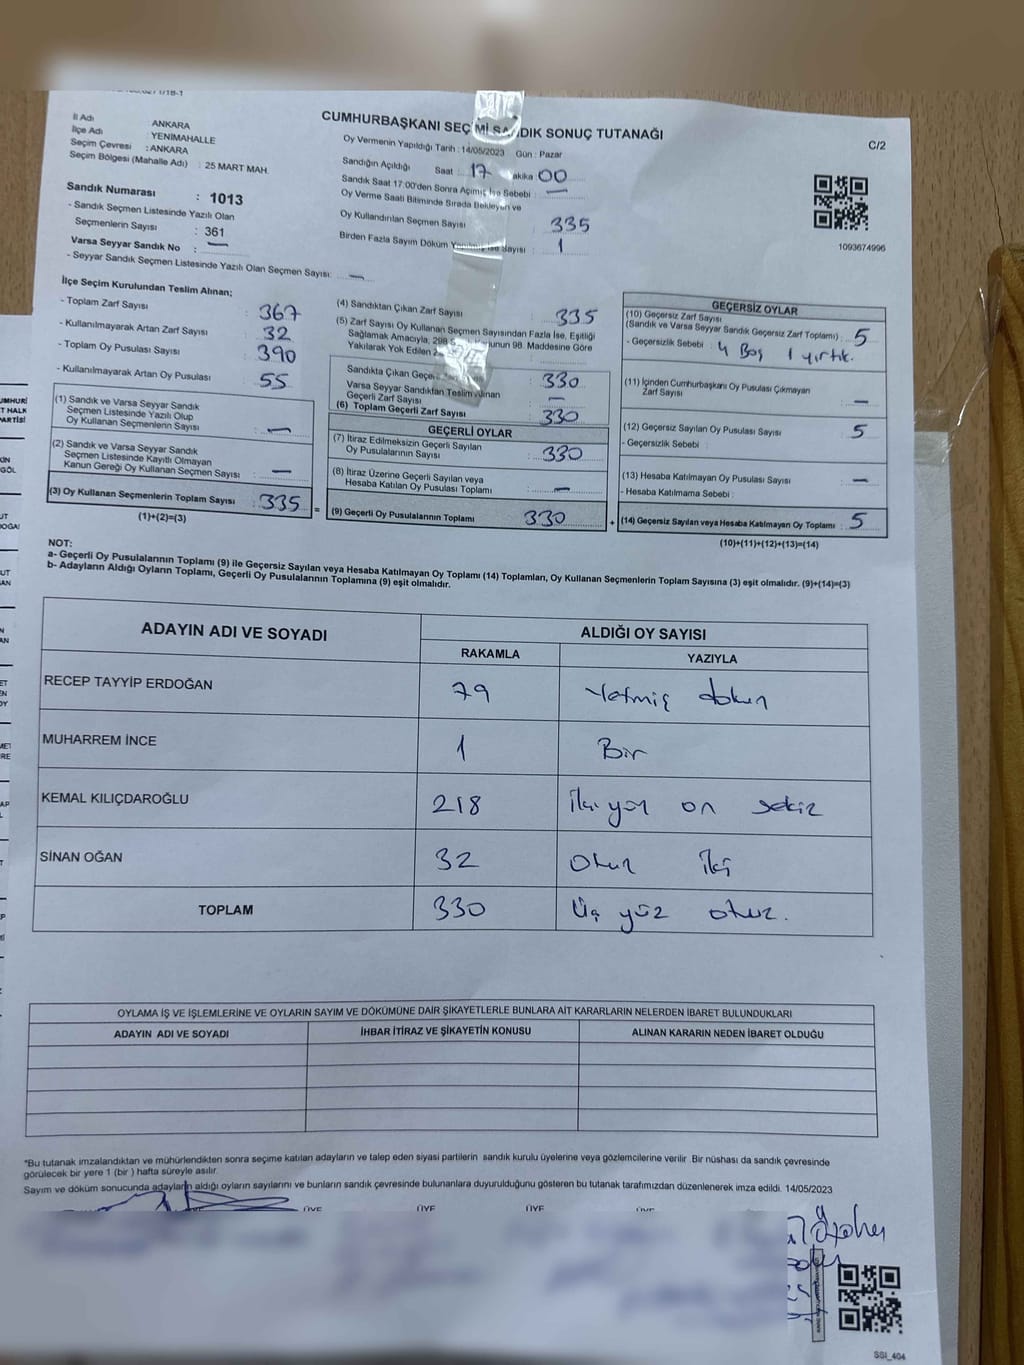 İl Adı : ANKARA
İlçe Adı : YENİMAHALLE
Seçim Çevresi : ANKARA
Seçim Bölgesi (Mahalle Adı) : 25 MART MAH.
CUMHURBAŞKANI SEÇİMİ SANDIK SONUÇ TUTANAĞI
C/2
Oy Vermenin Yapıldığı Tarih : 14/05/2023 Gün : Pazar
Sandığın Açıldığı Saat : 17 Dakika : 00
Sandık Saat 17:00'den Sonra Açılmış İse Sebebi : —
Oy Verme Saati Bitiminde Sırada Bekleyen ve
Oy Kullandırılan Seçmen Sayısı : 335
Birden Fazla Sayım Döküm Yapılmış ise Sayısı : 1
1093674996
Sandık Numarası : 1013
- Sandık Seçmen Listesinde Yazılı Olan
Seçmenlerin Sayısı : 361
Varsa Seyyar Sandık No : —
- Seyyar Sandık Seçmen Listesinde Yazılı Olan Seçmen Sayısı: —
İlçe Seçim Kurulundan Teslim Alınan;
- Toplam Zarf Sayısı : 367
- Kullanılmayarak Artan Zarf Sayısı : 32
- Toplam Oy Pusulası Sayısı : 390
- Kullanılmayarak Artan Oy Pusulası : 55
(1) Sandık ve Varsa Seyyar Sandık
Seçmen Listesinde Yazılı Olup
Oy Kullanan Seçmenlerin Sayısı : —
(2) Sandık ve Varsa Seyyar Sandık
Seçmen Listesinde Kayıtlı Olmayan
Kanun Gereği Oy Kullanan Seçmen Sayısı : —
(3) Oy Kullanan Seçmenlerin Toplam Sayısı : 335
(1)+(2)=(3)
(4) Sandıktan Çıkan Zarf Sayısı : 335
(5) Zarf Sayısı Oy Kullanan Seçmen Sayısından Fazla İse, Eşitliği
Sağlamak Amacıyla, 298 Kanunun 98. Maddesine Göre
Yakılarak Yok Edilen
Sandıkta Çıkan : 330
Varsa Seyyar Sandıktan Teslim Alınan
Geçerli Zarf Sayısı : —
(6) Toplam Geçerli Zarf Sayısı : 330
GEÇERLİ OYLAR
(7) İtiraz Edilmeksizin Geçerli Sayılan
Oy Pusulalarının Sayısı : 330
(8) İtiraz Üzerine Geçerli Sayılan veya
Hesaba Katılan Oy Pusulası Toplamı : —
= (9) Geçerli Oy Pusulalarının Toplamı 330
GEÇERSİZ OYLAR
(10) Geçersiz Zarf Sayısı
(Sandık ve Varsa Seyyar Sandık Geçersiz Zarf Toplamı) : 5
- Geçersizlik Sebebi : 4 Boş 1 yırtık.
(11) İçinden Cumhurbaşkanı Oy Pusulası Çıkmayan
Zarf Sayısı : —
(12) Geçersiz Sayılan Oy Pusulası Sayısı : 5
- Geçersizlik Sebebi :
(13) Hesaba Katılmayan Oy Pusulası Sayısı : —
- Hesaba Katılmama Sebebi :
+ (14) Geçersiz Sayılan veya Hesaba Katılmayan Oy Toplamı : 5
(10)+(11)+(12)+(13)=(14)
NOT:
a- Geçerli Oy Pusulalarının Toplamı (9) ile Geçersiz Sayılan veya Hesaba Katılmayan Oy Toplamı (14) Toplamları, Oy Kullanan Seçmenlerin Toplam Sayısına (3) eşit olmalıdır. (9)+(14)=(3)
b- Adayların Aldığı Oyların Toplamı, Geçerli Oy Pusulalarının Toplamına (9) eşit olmalıdır.
ADAYIN ADI VE SOYADI ALDIĞI OY SAYISI
RAKAMLA YAZIYLA
RECEP TAYYİP ERDOĞAN 79 Yetmiş dokuz
MUHARREM İNCE 1 Bir
KEMAL KILIÇDAROĞLU 218 iki yüz on sekiz
SİNAN OĞAN 32 Otuz iki
TOPLAM 330 Üç yüz otuz.
OYLAMA İŞ VE İŞLEMLERİNE VE OYLARIN SAYIM VE DÖKÜMÜNE DAİR ŞİKAYETLERLE BUNLARA AİT KARARLARIN NELERDEN İBARET BULUNDUKLARI
ADAYIN ADI VE SOYADI İHBAR İTİRAZ VE ŞİKAYETİN KONUSU ALINAN KARARIN NEDEN İBARET OLDUĞU
*Bu tutanak imzalandıktan ve mühürlendikten sonra seçime katılan adayların ve talep eden siyasi partilerin sandık kurulu üyelerine veya gözlemcilerine verilir. Bir nüshası da sandık çevresinde
görülecek bir yere 1 (bir) hafta süreyle asılır.
Sayım ve döküm sonucunda adayların aldığı oyların sayılarını ve bunların sandık çevresinde bulunanlara duyurulduğunu gösteren bu tutanak tarafımızdan düzenlenerek imza edildi. 14/05/2023
ÜYE ÜYE ÜYE ÜYE
SSI_404